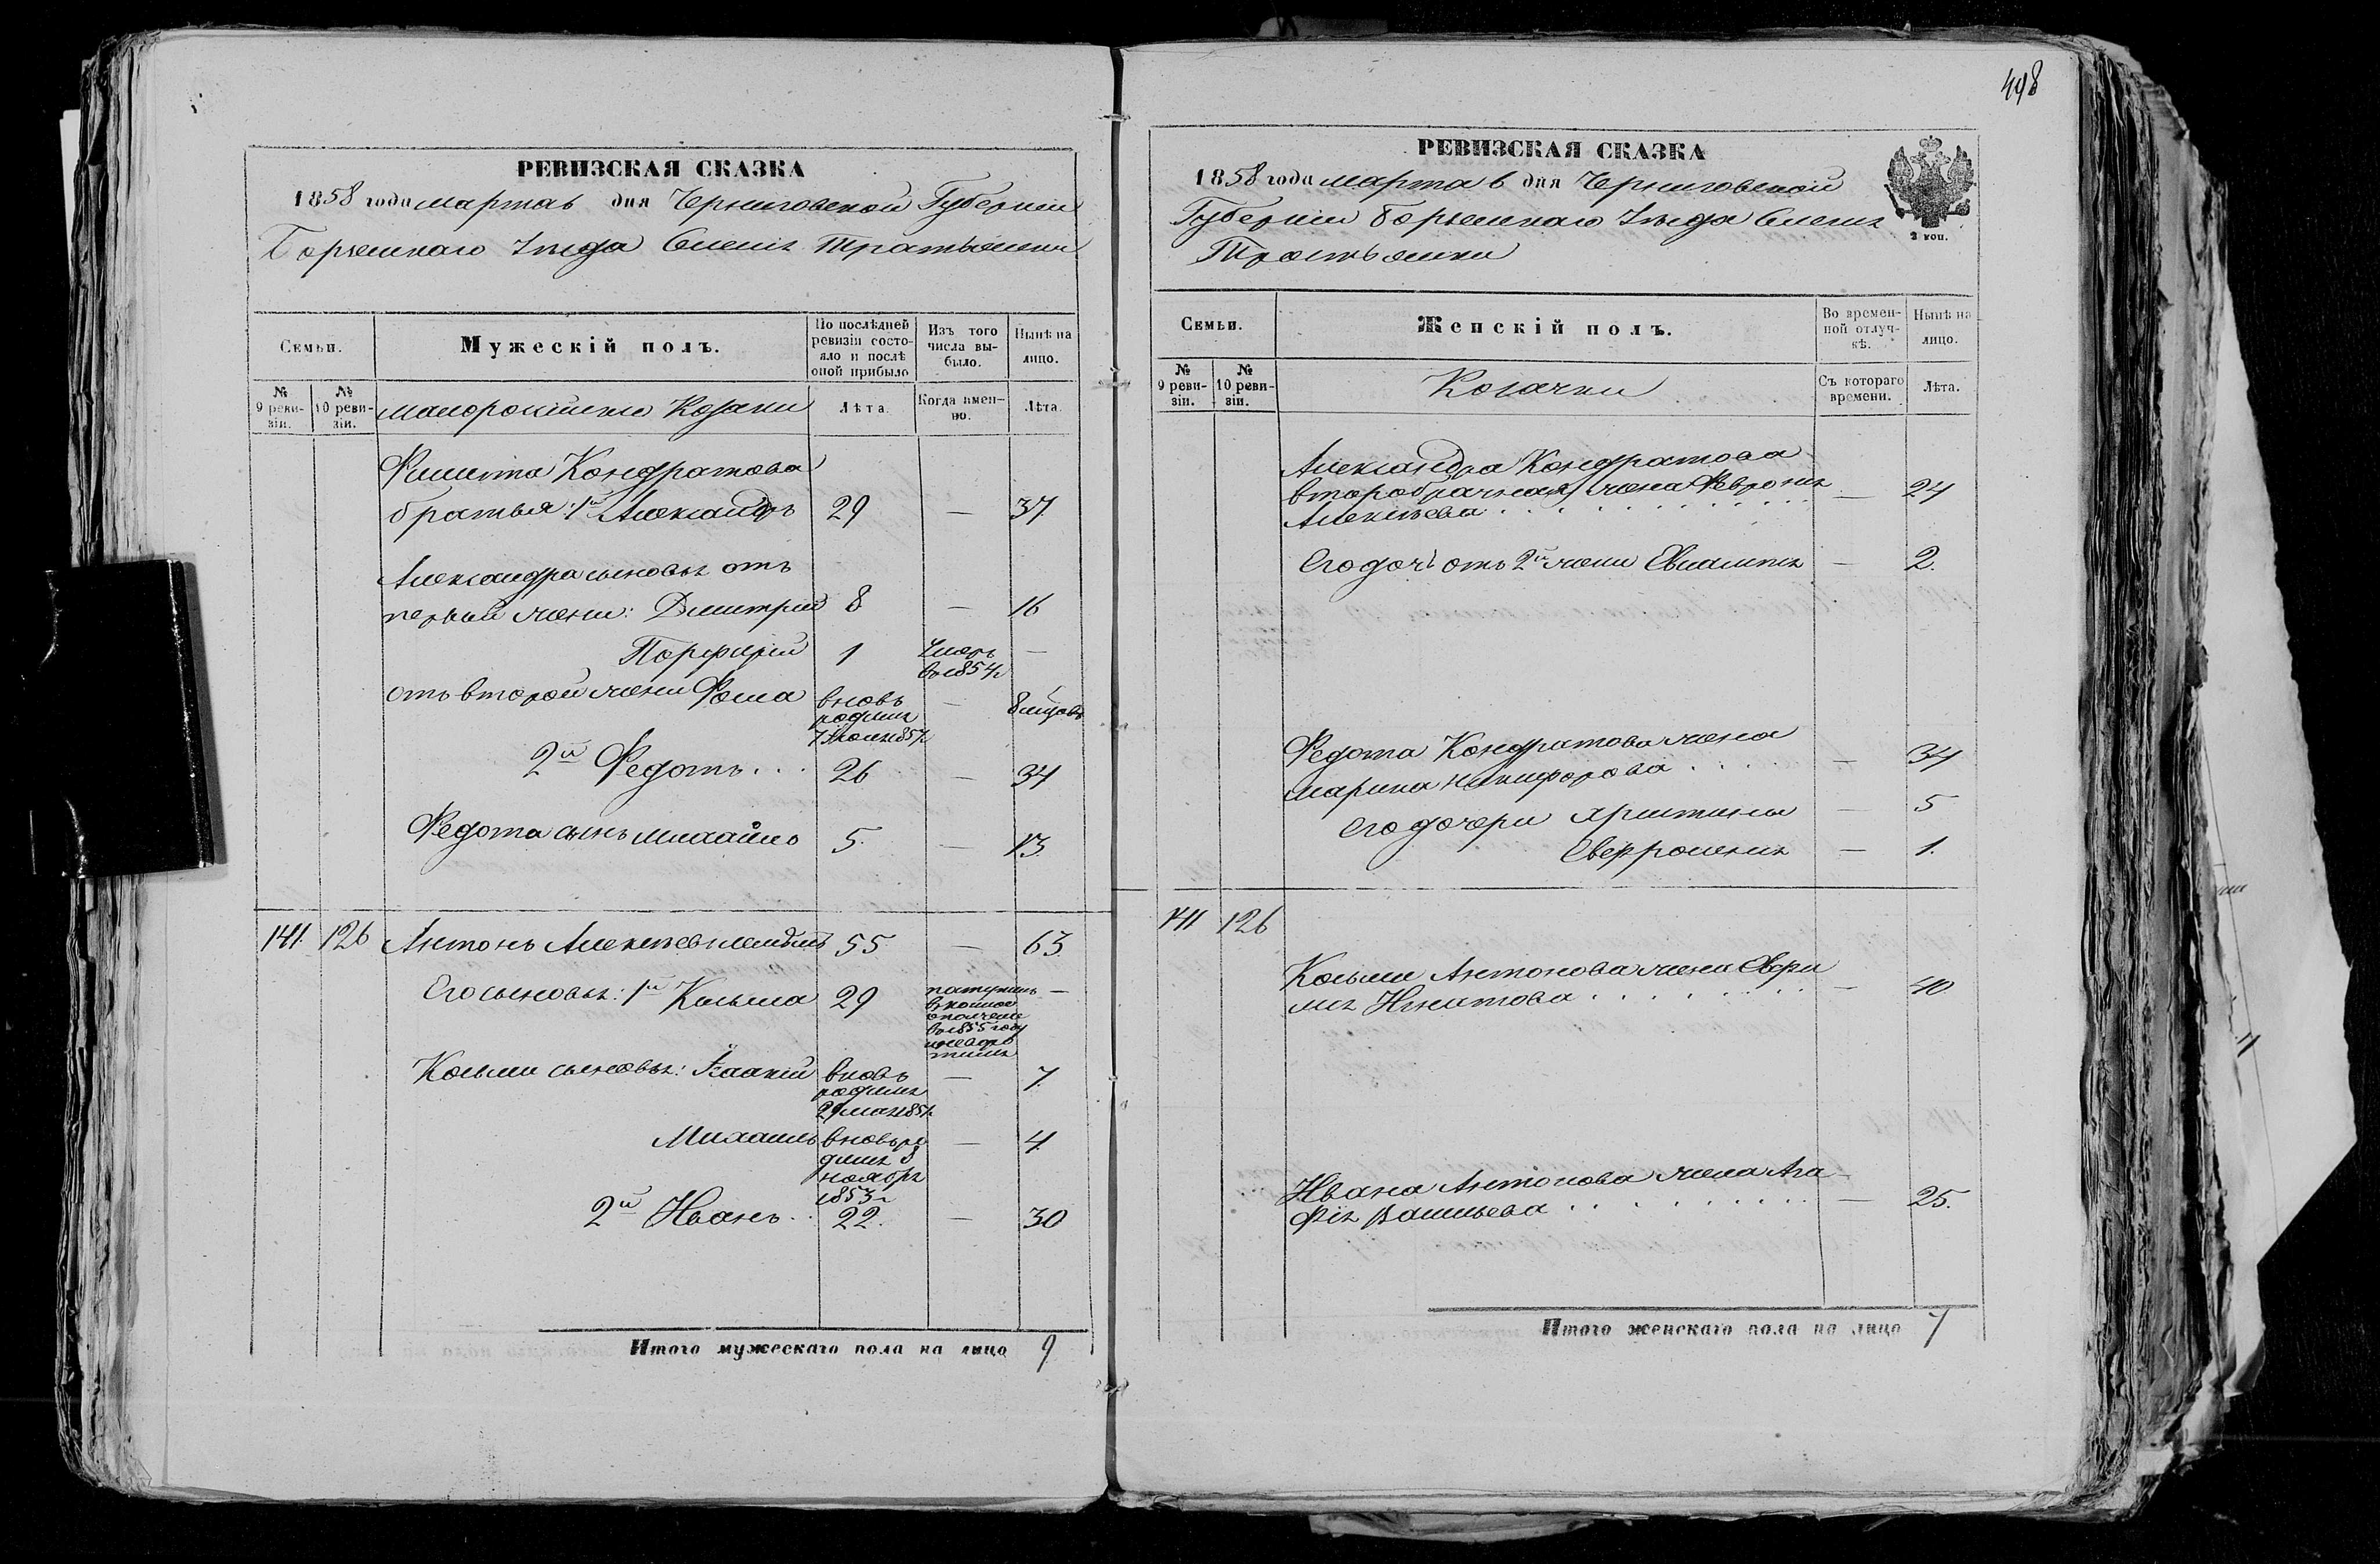 РЕВИЗСКАЯ СКАЗКА
1858 года марта 6 дня Черниговской Губернии
Борзенскаго Уезда Селенія Тростянки
Семьи.
Мужескій полъ.
По послѣдней ревизіи состояло и послѣ оной прибыло
Изъ того числа выбыло.
Нынѣ на лицо.
№ 9 ревизіи.
№ 10 ревизіи.
малороссійскіе Козаки
Лѣта.
Когда именно.
Лѣта.
Филипа Кондратова
братья: 1й Александръ 29 — 37
Александра сыновья отъ
первой жены: Дмитрій 8 — 16
Порфирій 1 Умеръ в 1854 г —
отъ второй жены Фома вновь родился 7 1857 г. — 8 мцовъ
2й Федотъ... 26 — 34
Федота сынъ Михайло 5. — 13.
141. 126 Антонъ Алексѣевъ 55 — 63
Его сыновья: 1й Косьма 29 поступилъ в конное ополченіе в 1855 году —
Косьмы сыновья: Исаакій вновь родился 29 мая 1851 г. — 7.
Михаилъ вновь родился 8 ноября 1853 г — 4.
2й Иванъ.. 22. — 30
Итого мужескаго пола на лицо 9
498
РЕВИЗСКАЯ СКАЗКА
1858 года марта 6 дня Черниговской
Губерніи Борзенскаго Уезда Селенія
Тростьянки
2 коп.
Семьи.
Женскій полъ.
Во временной отлучкѣ.
Нынѣ на лицо.
№ 9 ревизіи.
№ 10 ревизіи.
Козачки
Съ котораго времени.
Лѣта.
Александра Кондратова
второбрачная жена Феврония
Алексѣева — 24
Его дочь отъ 2й жены Евлампія — 2.
Федота Кондратова жена
Марина Никифорова — 34
Его дочери Христина — 5
Евфросинія — 1.
141 126
Косьмы Антонова жена
Игнатова — 40
Ивана Антонова жена Ага-
фія Васильева — 25.
Итого женскаго пола на лицо 7